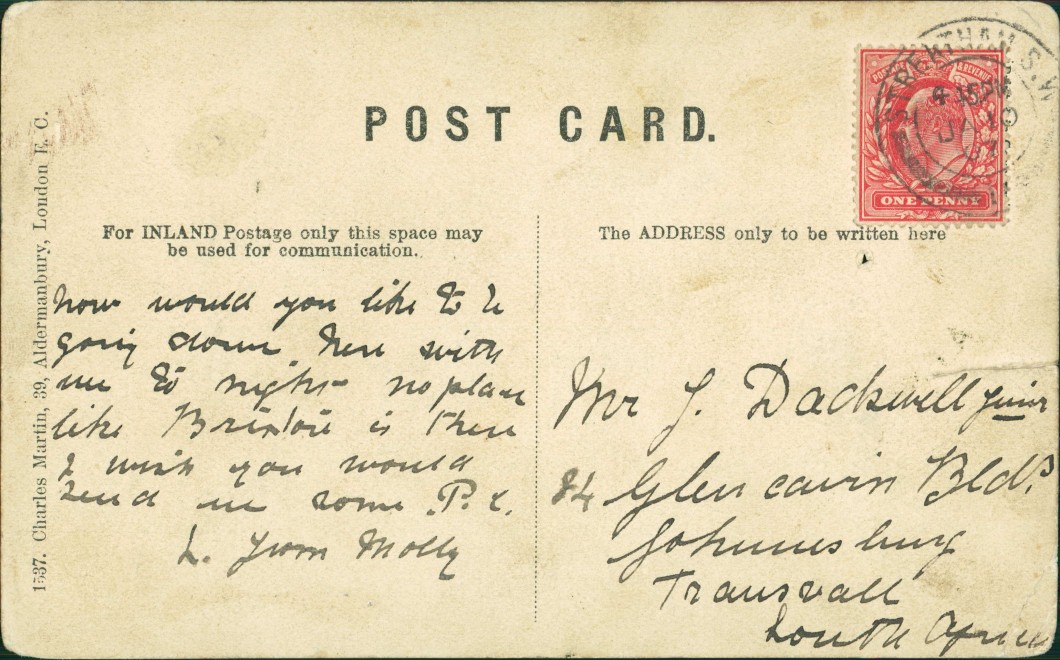 POST CARD.
STREATHAM. S.W
4 15 PM
JA 18
07
POSTAGE & REVENUE
ONE PENNY
1537. Charles Martin, 39, Aldermanbury, London E. C.
For INLAND Postage only this space may
be used for communication.
The ADDRESS only to be written here
how would you like to be
going down here with
me to night no place
like Brixton is there
I wish you would
send me some P. C.
L. from Molly
Mr J. Dackwell Junior
84 Glencairn Bldgs
Johannesburg
Transvall
South Africa